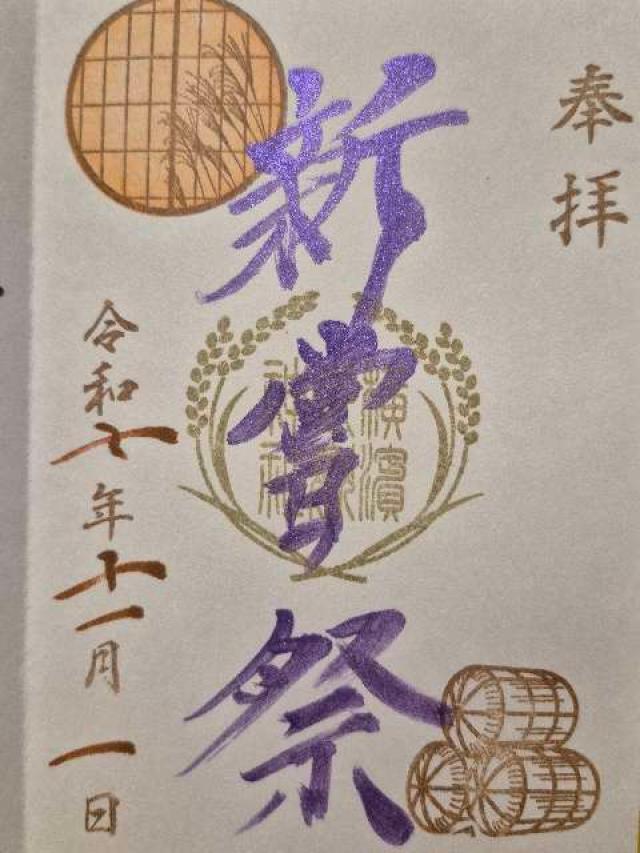 奉拝
新嘗祭
横濱
令和七年十一月一日